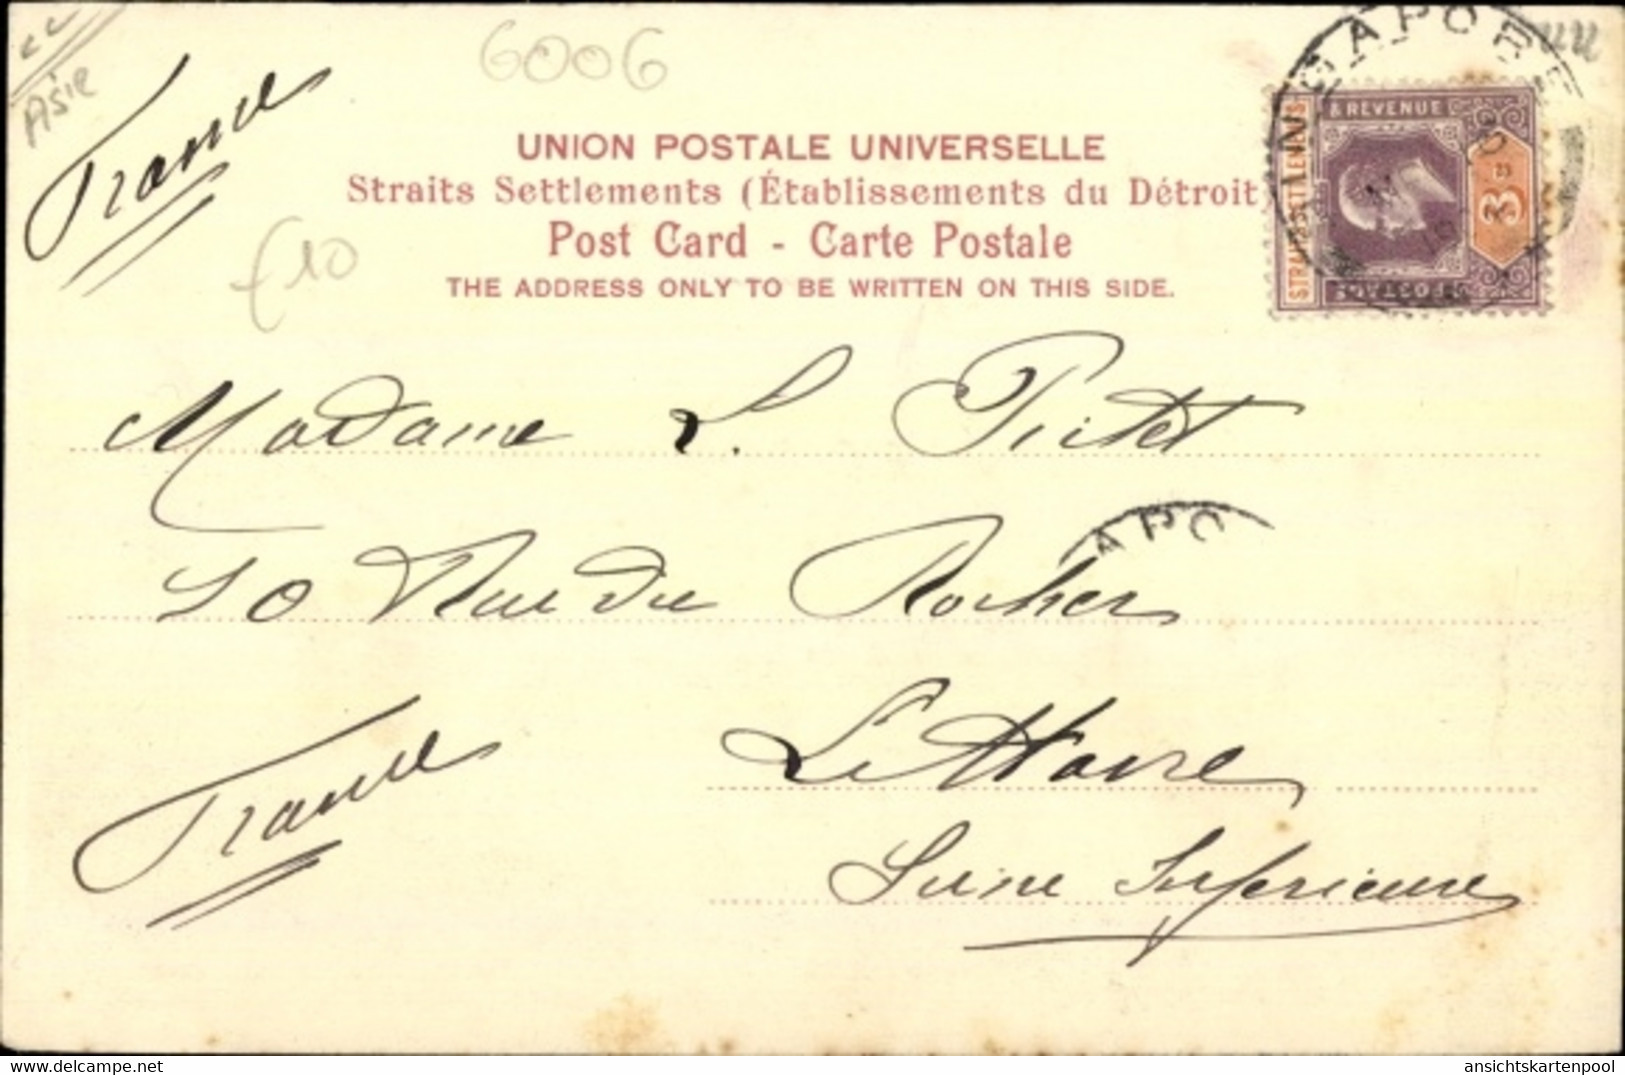 Asie
France
6006
£10
UNION POSTALE UNIVERSELLE
Straits Settlements (Établissements du Détroit
Post Card - Carte Postale
THE ADDRESS ONLY TO BE WRITTEN ON THIS SIDE.
& REVENUE
STRAITS SETTLEMENTS
3
SINGAPORE
Madame L.
APO
Rue du Rocher
France
Le Havre
Seine Inférieure
ansichtskartenpool